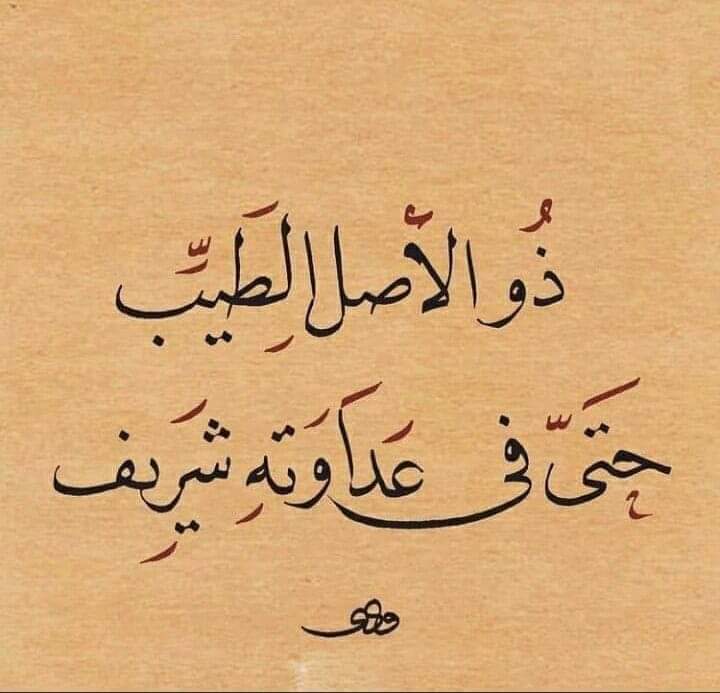 ذُو الأصل الطَيِّب
حَتَىّ في عَدَاوَتهِ شَرِيف